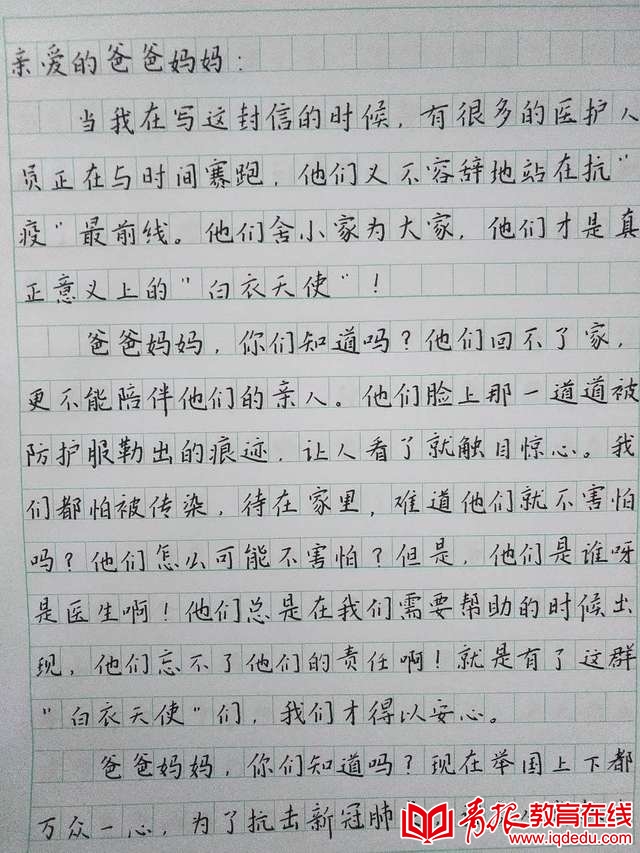 亲爱的爸爸妈妈：
当我在写这封信的时候，有很多的医护人
员正在与时间赛跑，他们义不容辞地站在抗"
疫"最前线。他们舍小家为大家，他们才是真
正意义上的"白衣天使"！
爸爸妈妈，你们知道吗？他们回不了家，
更不能陪伴他们的亲人。他们脸上那一道道被
防护服勒出的痕迹，让人看了就触目惊心。我
们都怕被传染，待在家里，难道他们就不害怕
吗？他们怎么可能不害怕？但是，他们是谁呀
是医生啊！他们总是在我们需要帮助的时候出
现，他们忘不了他们的责任啊！就是有了这群
"白衣天使"们，我们才得以安心。
爸爸妈妈，你们知道吗？现在举国上下都
万众一心，为了抗击新冠肺
青报教育在线
www.iqdedu.com